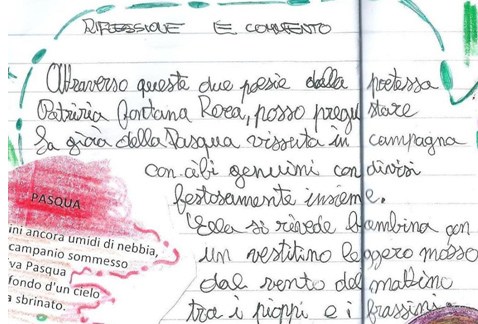 RIFLESSIONE E COMMENTO
Attraverso queste due poesie dalla poetessa
Patrizia Fontana Roca, posso pregustare
la gioia della Pasqua vissuta in campagna
con cibi genuini condivisi
festosamente insieme.
Ella si rivede bambina con
un vestitino leggero mosso
dal vento del mattino
tra i pioppi e i frassini
PASQUA
ini ancora umidi di nebbia,
campanio sommesso
va Pasqua
fondo d'un cielo
a sbrinato.